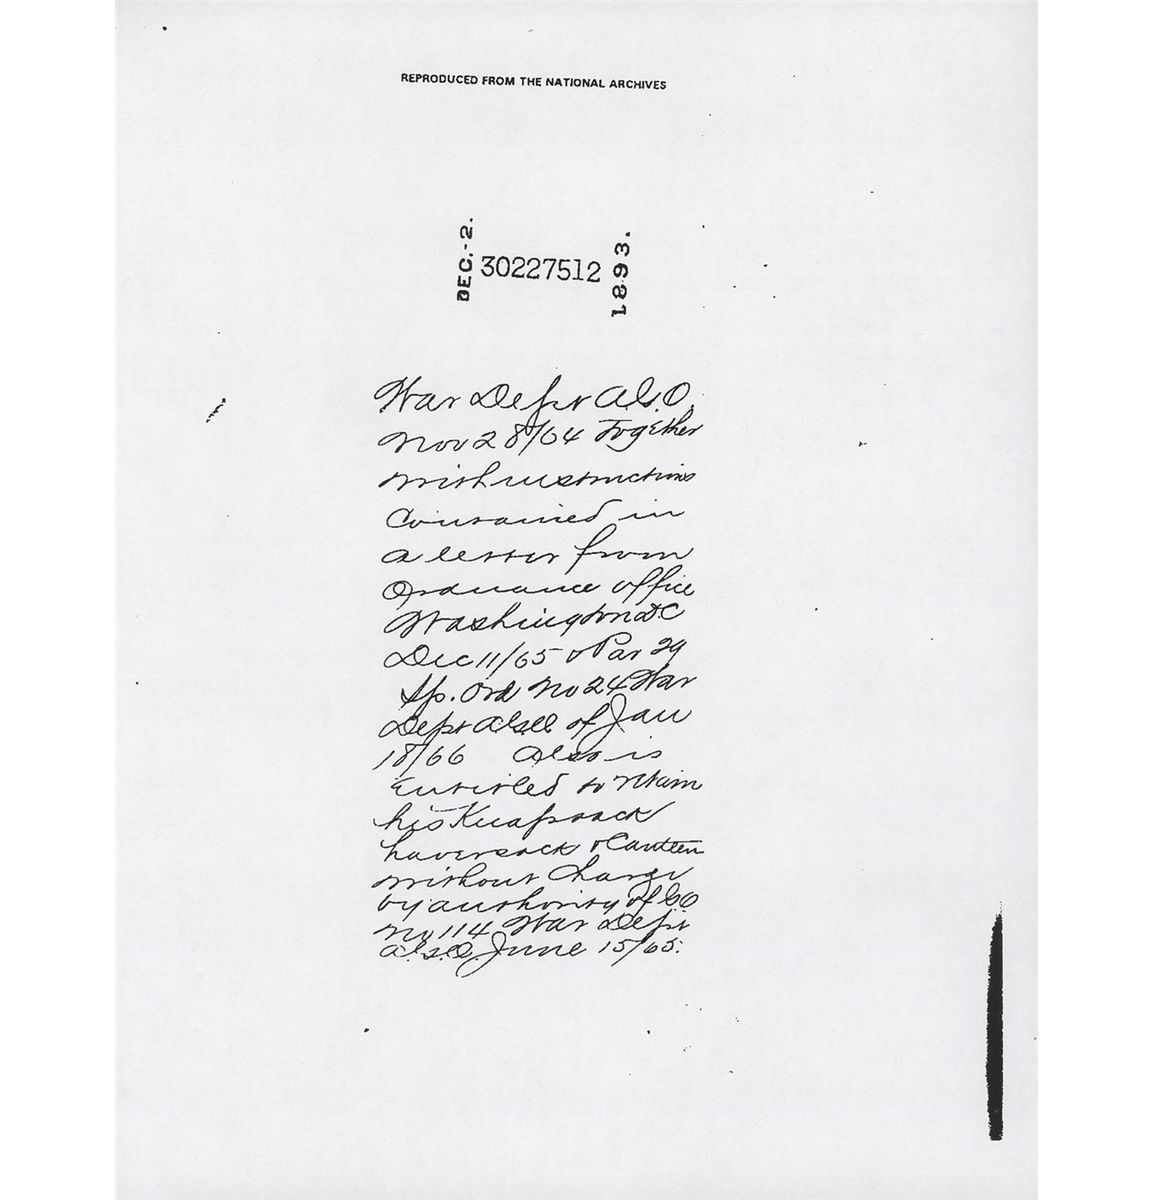 REPRODUCED FROM THE NATIONAL ARCHIVES
DEC.-2.
30227512
1893.
War Dept A.G.O.
Nov 28/64 Together
with instructions
Contained in
a letter from
Ordnance office
Washington D.C
Dec 11/65 & Par 29
Sp. Ord No 24 War
Dept of Jan
18/66 Also is
Entitled to retain
his Knapsack
haversack & Canteen
without Charge
by authority of GO
No 114 War Dept
A.G.O. June 15/65.